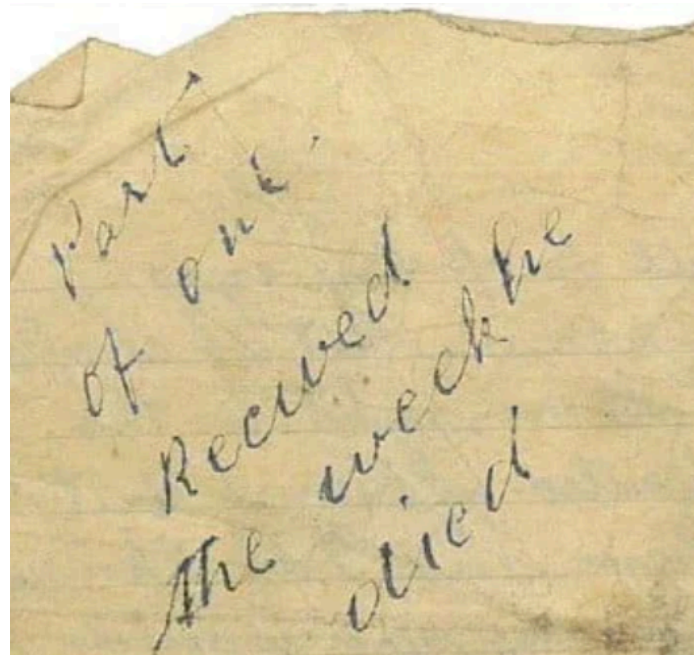 Part
of one.
Recieved
the week he
died